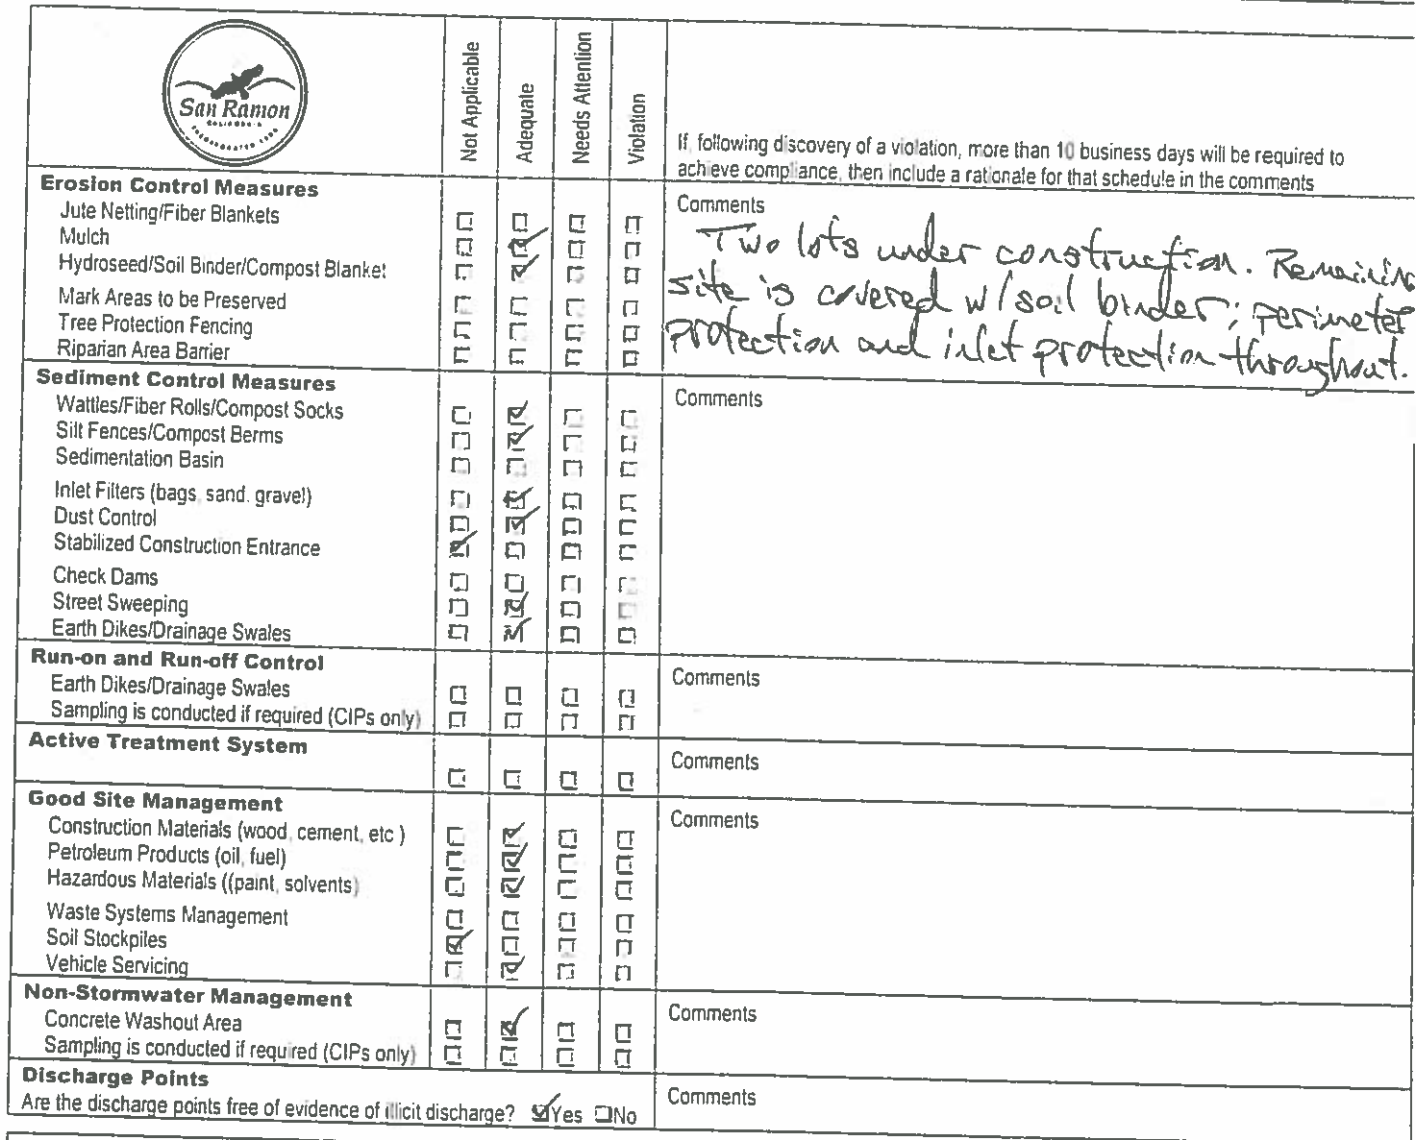 San Ramon
CALIFORNIA
INCORPORATED 1983
Not Applicable
Adequate
Needs Attention
Violation
If, following discovery of a violation, more than 10 business days will be required to
achieve compliance, then include a rationale for that schedule in the comments
Erosion Control Measures
Comments
Jute Netting/Fiber Blankets
Mulch
Hydroseed/Soil Binder/Compost Blanket
Mark Areas to be Preserved
Tree Protection Fencing
Riparian Area Barrier
Two lots under construction. Remaining
site is covered w/soil binder; perimeter
protection and inlet protection throughout.
Sediment Control Measures
Comments
Wattles/Fiber Rolls/Compost Socks
Silt Fences/Compost Berms
Sedimentation Basin
Inlet Filters (bags, sand. gravel)
Dust Control
Stabilized Construction Entrance
Check Dams
Street Sweeping
Earth Dikes/Drainage Swales
Run-on and Run-off Control
Comments
Earth Dikes/Drainage Swales
Sampling is conducted if required (CIPs only)
Active Treatment System
Comments
Good Site Management
Comments
Construction Materials (wood, cement, etc )
Petroleum Products (oil, fuel)
Hazardous Materials ((paint, solvents)
Waste Systems Management
Soil Stockpiles
Vehicle Servicing
Non-Stormwater Management
Comments
Concrete Washout Area
Sampling is conducted if required (CIPs only)
Discharge Points
Comments
Are the discharge points free of evidence of illicit discharge? ☑Yes ☐No